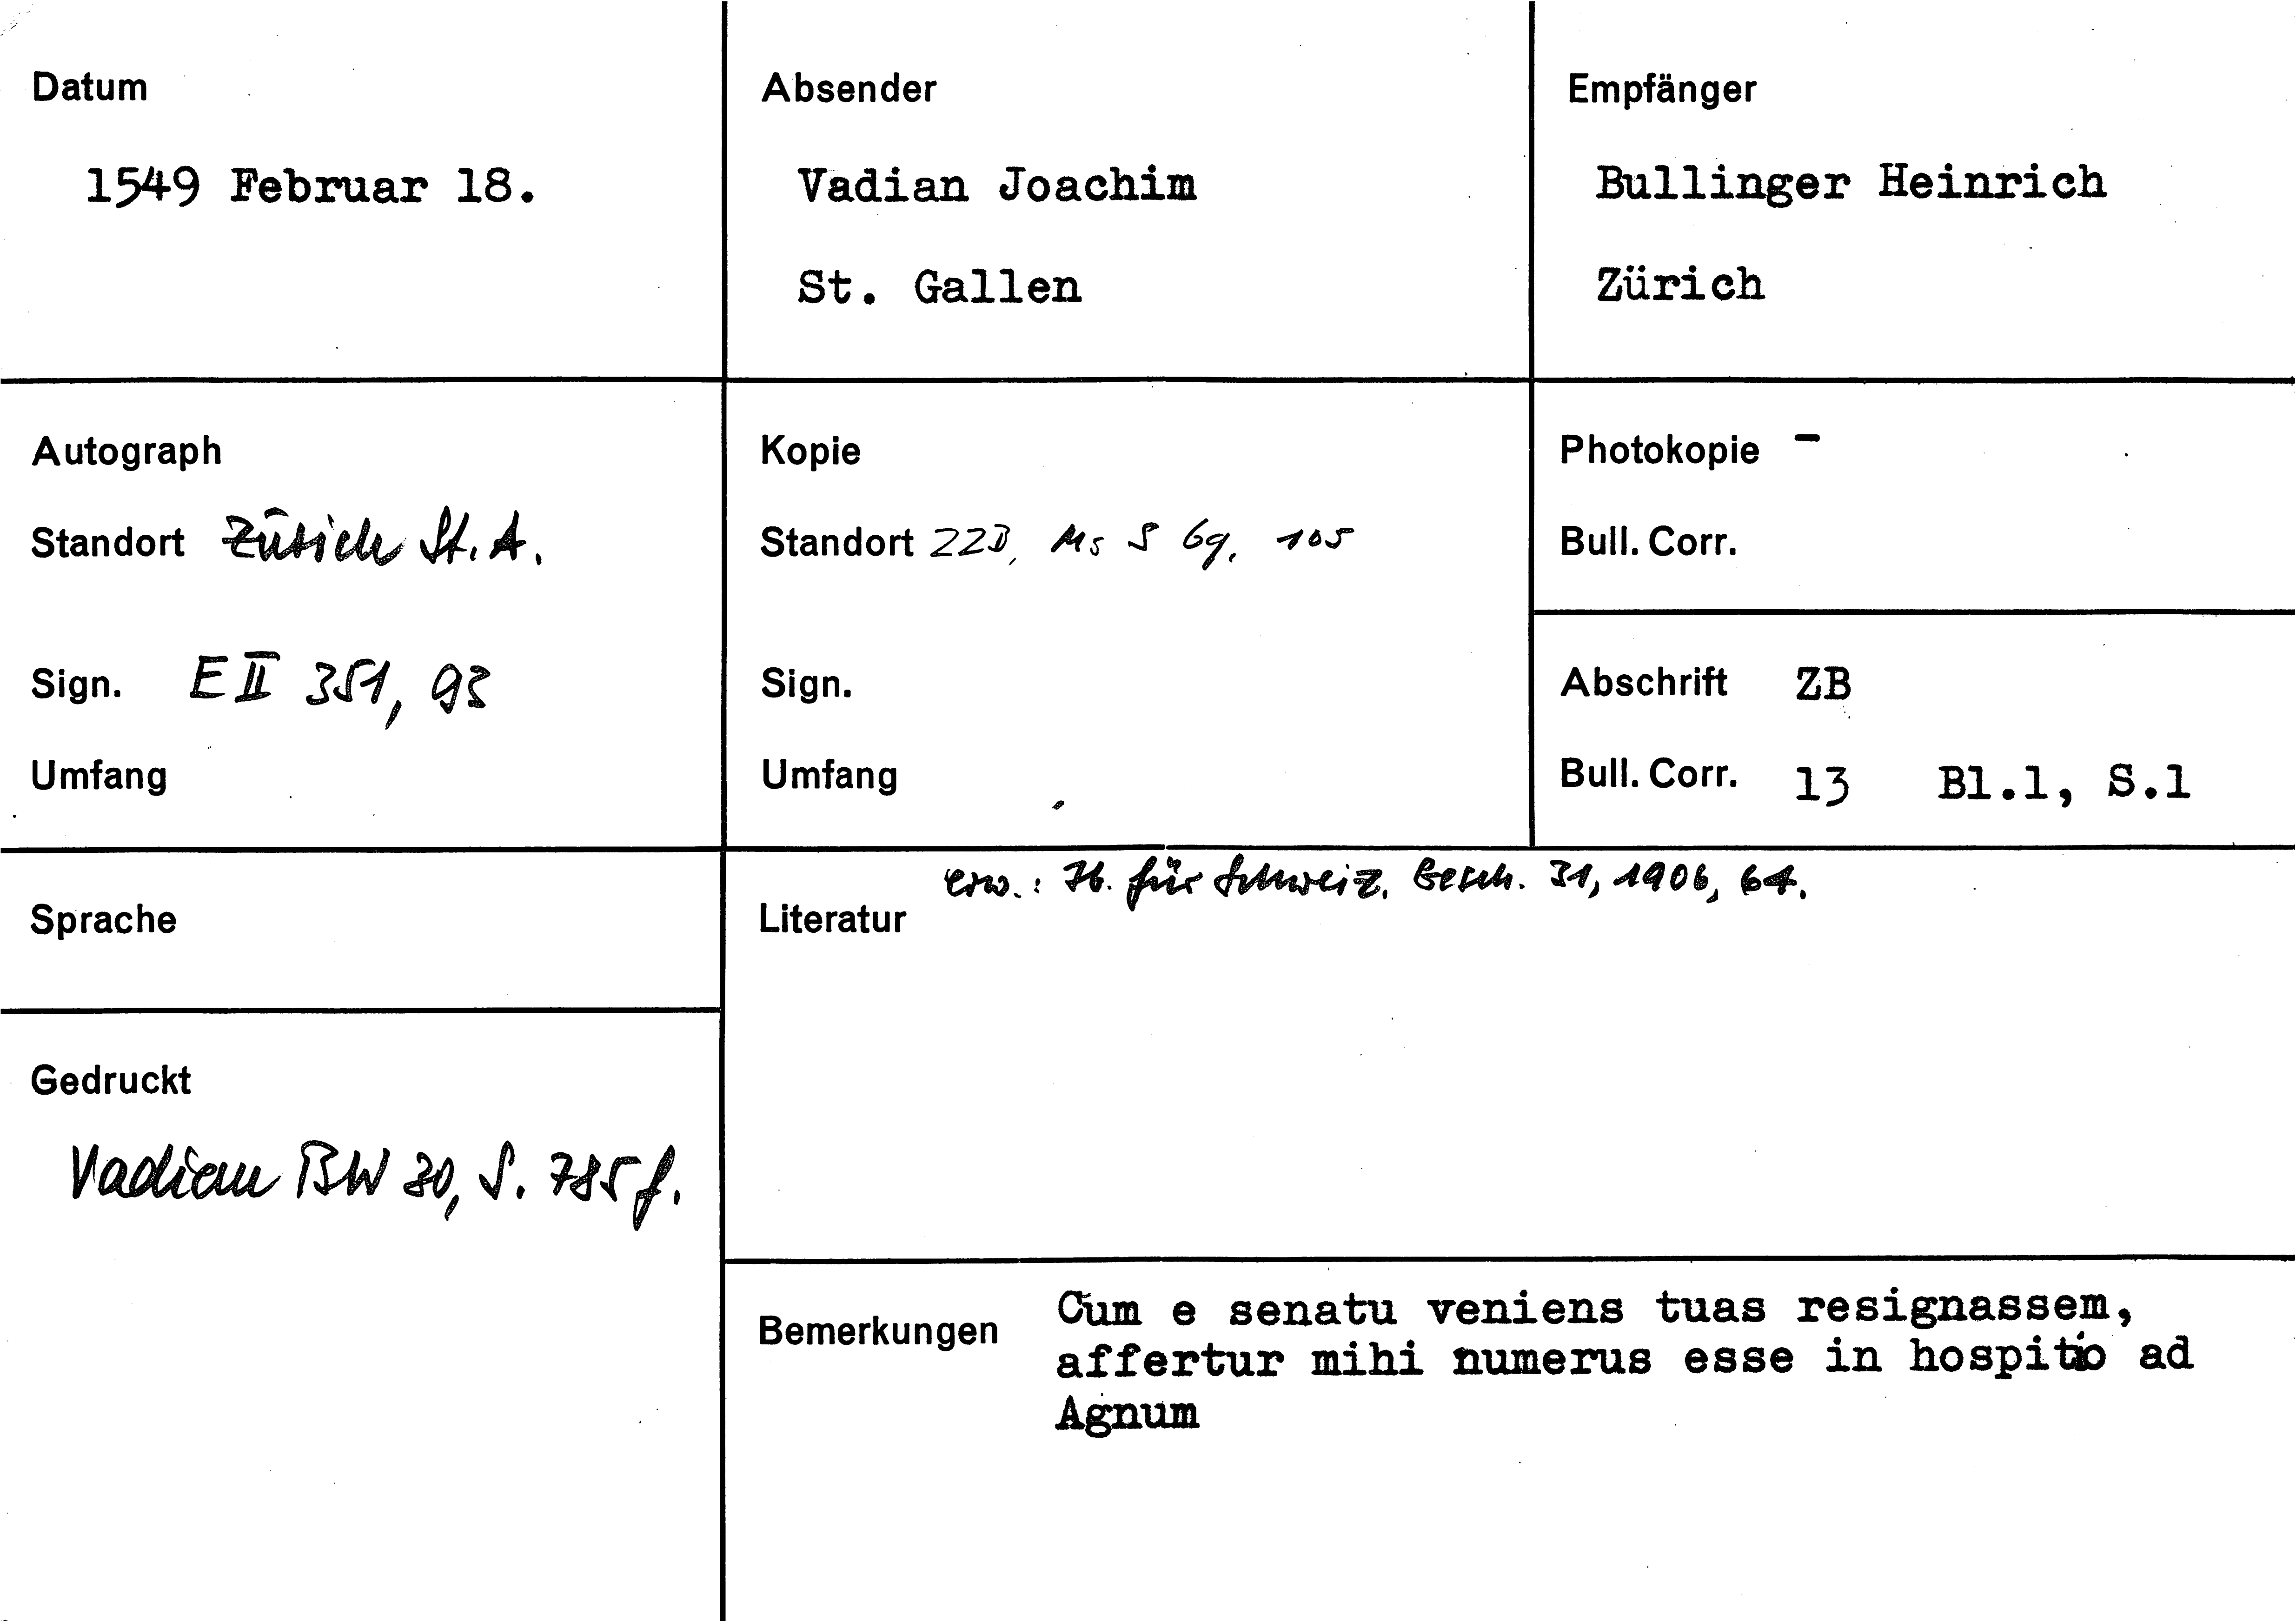 Datum
1549 Februar 18.
Absender
Vadian Joachim
St. Gallen
Empfänger
Bullinger Heinrich
Zürich
Autograph
Standort Zürich St. A.
Sign. E II 351, 93
Umfang
Kopie
Standort ZZB, Ms S 69, 105
Sign.
Umfang
Photokopie -
Bull. Corr.
Abschrift ZB
Bull. Corr. 13 Bl.1, S.1
Sprache
Gedruckt
Vadian BW 30, S. 785 f.
erw.: Jb. für Schweiz. Gesch. 31, 1906, 64.
Literatur
Bemerkungen Cum e senatu veniens tuas resignassem,
affertur mihi numerus esse in hospitio ad
Agnum